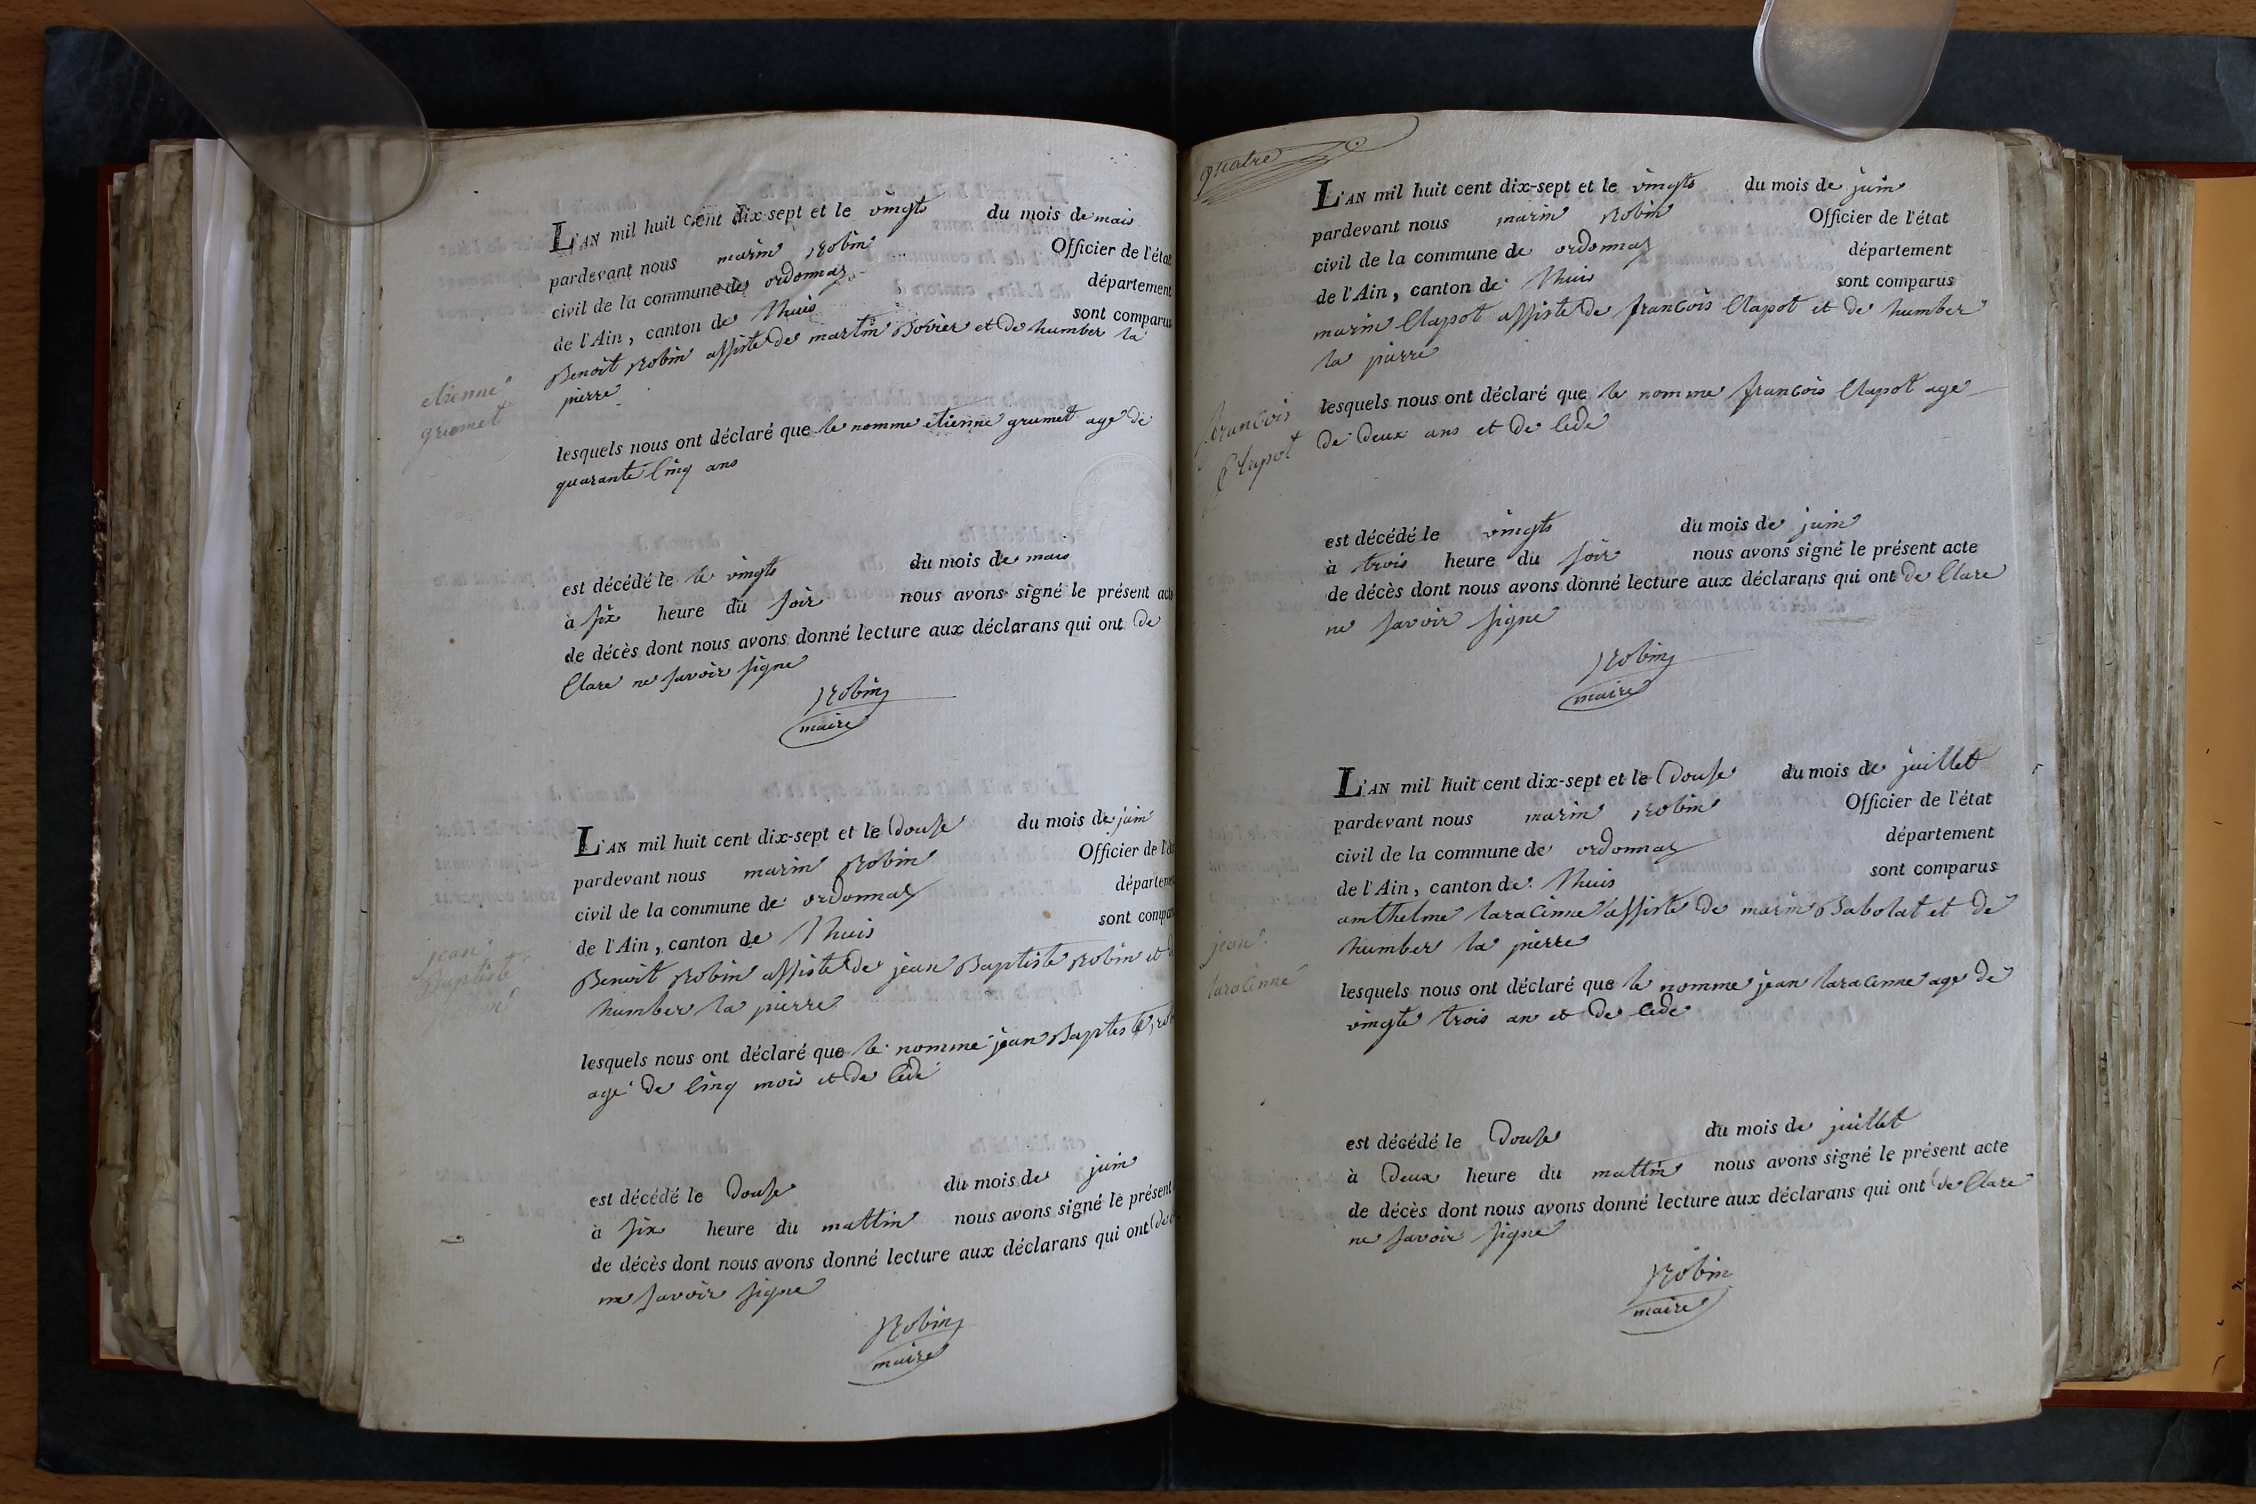 L'AN mil huit cent dix-sept et le vingts du mois de mais
pardevant nous marin Robin Officier de l'état
civil de la commune de ordonnaz département
de l'Ain, canton de lhuis sont comparus
Benoit Robin assisté de martin Bovier et de humber la
pierre
etienne
grumet
lesquels nous ont déclaré que le nomme etienne grumet agé de
quarante Cinq ans
est décédé le le vingts du mois de mais
à six heure du soir nous avons signé le présent acte
de décès dont nous avons donné lecture aux déclarans qui ont de
Clare ne savoir signe
Robin
maire
L'AN mil huit cent dix-sept et le Douse du mois de juin
pardevant nous marin Robin Officier de l'éta
civil de la commune de ordonnaz départemen
de l'Ain, canton de lhuis sont compar
Benoit Robin assisté de jean Baptiste Robin et d
humber la pierre
jean
Baptiste
lesquels nous ont déclaré que le nomme jean Baptiste rob
agé de Cinq mois et de Cédé
est décédé le Douse du mois de juin
à six heure du mattin nous avons signé le présent
de décès dont nous avons donné lecture aux déclarans qui ont de
ne savoir signe
Robin
maire
quatre
L'AN mil huit cent dix-sept et le vingts du mois de juin
pardevant nous marin Robin Officier de l'état
civil de la commune de ordonnaz département
de l'Ain, canton de lhuis sont comparus
marin Clapot assisté de francois Clapot et de humber
la pierre
francois
Clapot
lesquels nous ont déclaré que le nomme francois Clapot age
de deux ans et de Cede
est décédé le vingts du mois de juin
à trois heure du soir nous avons signé le présent acte
de décès dont nous avons donné lecture aux déclarans qui ont de Clare
ne savoir signe
Robin
maire
L'AN mil huit cent dix-sept et le Douse du mois de juillet
pardevant nous marin robin Officier de l'état
civil de la commune de ordonnaz département
de l'Ain, canton de lhuis sont comparus
amthelme laracinne assisté de marin Babolat et de
humber la pierre
jean
laracinne
lesquels nous ont déclaré que le nomme jean laracinne age de
vingte trois an et de Cede
est décédé le Douse du mois de juillet
à Deux heure du mattin nous avons signé le présent acte
de décès dont nous avons donné lecture aux déclarans qui ont de Clare
ne savoir signe
Robin
maire